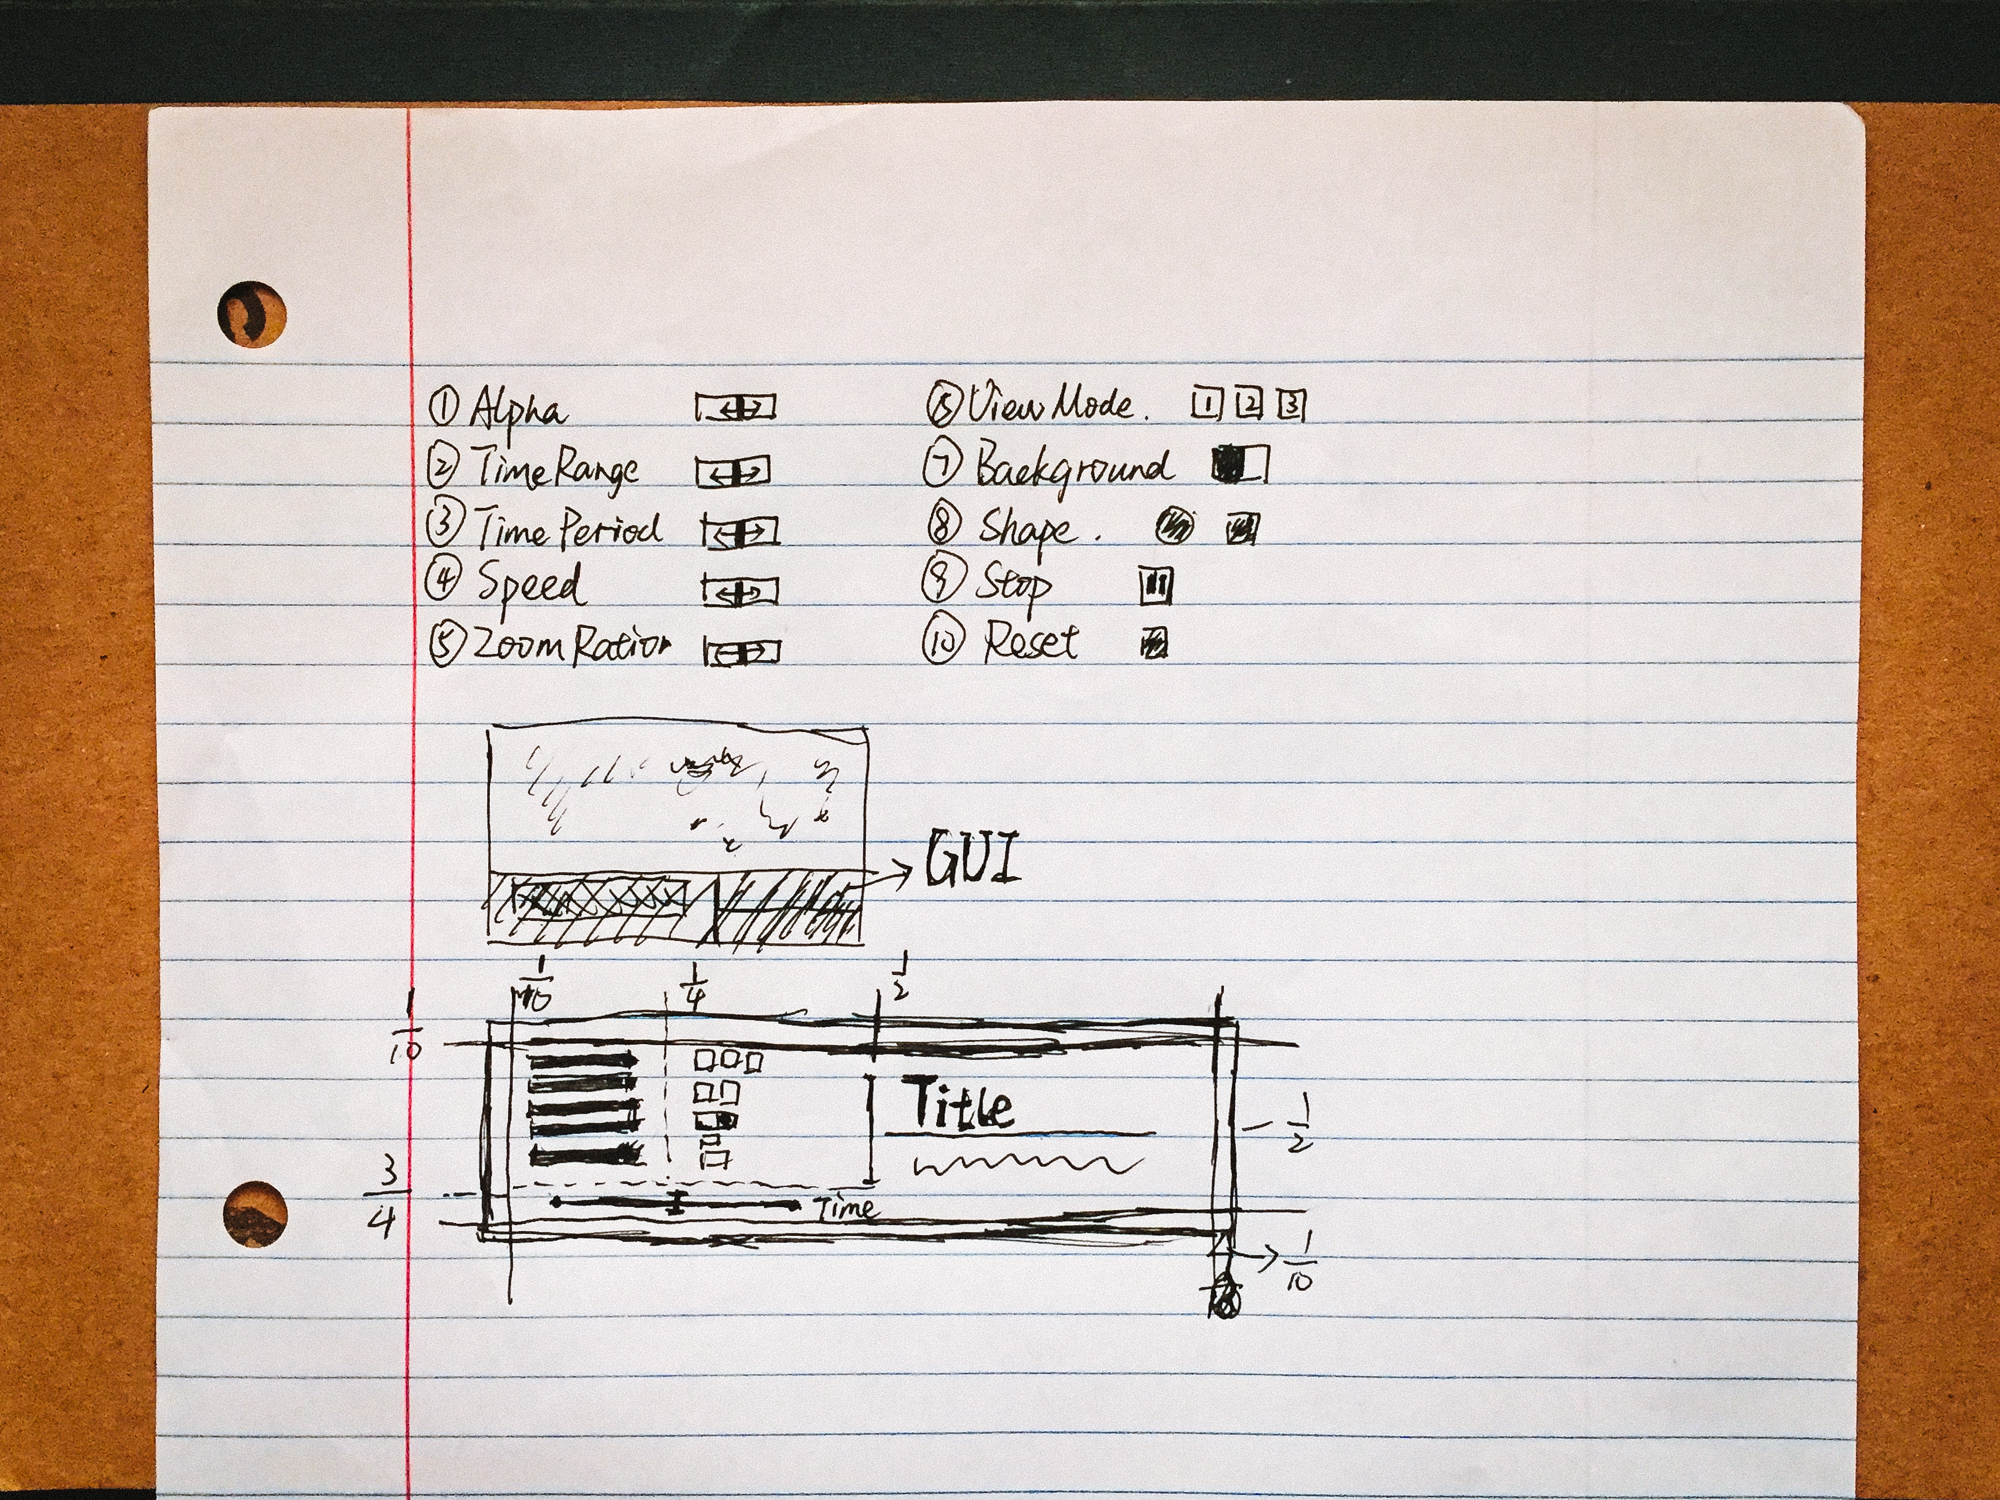 ① Alpha
② Time Range
③ Time Period
④ Speed
⑤ Zoom Ration
⑥ View Mode. 1 2 3
⑦ Background
⑧ Shape.
⑨ Stop
⑩ Reset
GUI
1/10 1/4 1/2
1/10
Title
1/2
3/4
Time
1/10